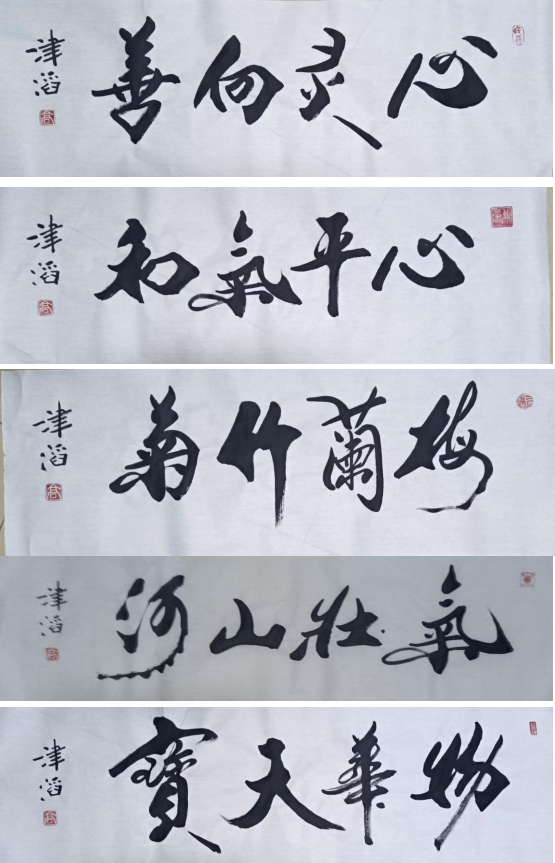 心灵向善
津滔
心平氣和
津滔
梅蘭竹菊
津滔
氣壯山河
津滔
物華天寶
津滔